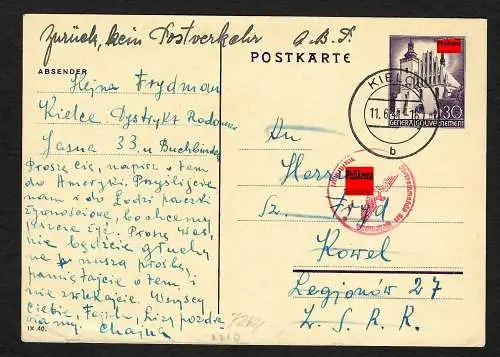 Zurück, kein Postverkehr
POSTKARTE
ABSENDER
Hejna Frydman
Kielce Dystrykt Radom
Jasna 33 u Buchbinder
Proszę cię, napisz o tem
do Ameryki. Przyślijcie
nam i do Łodzi paczki
żywnościowe, bo chcemy
jeszcze żyć. Proszę was
nie bądźcie głuchy
na naszą prośbę,
pamiętajcie o tem, i
nie zwlekajcie. Wszyscy
Ciebie,
Chajna
PHILArena
30
GENERALGOUVERNEMENT
KIELCE
11.6
b
An
Herrn
PHILArena
Sz. Fryd
Kowel
Legionów 27
Z. S. R. R.
IX.40.